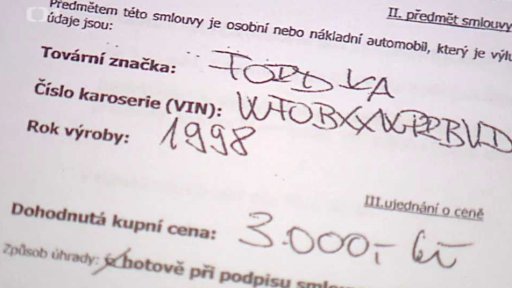 II. předmět smlouvy
Předmětem této smlouvy je osobní nebo nákladní automobil, který je výlu
údaje jsou:
Tovární značka: FORD KA
Číslo karoserie (VIN): WF0BXXWPRBVD
Rok výroby: 1998
III.ujednání o ceně
Dohodnutá kupní cena: 3.000,- Kč
Způsob úhrady: hotově při podpisu smlou